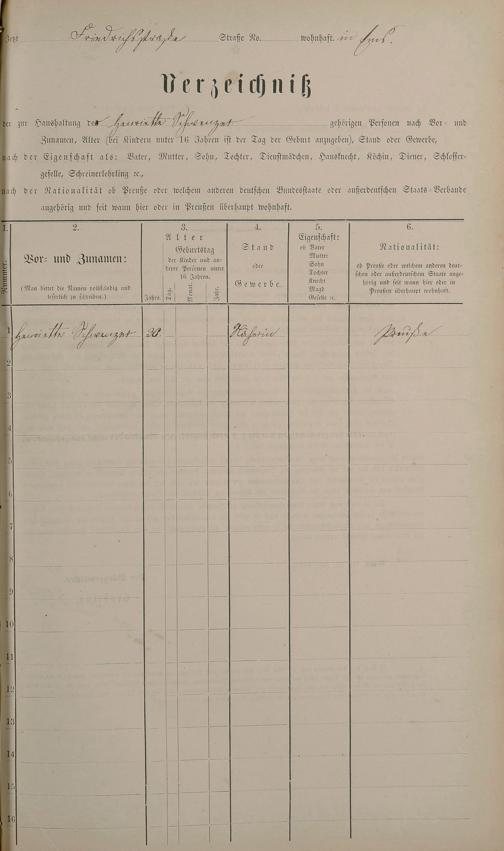 Jetzt Friedrichstraße Straße No. wohnhaft. in Ems.
Verzeichniß
der zur Haushaltung der Henriette Schwenzer gehörigen Personen nach Vor- und
Zunamen, Alter (bei Kindern unter 16 Jahren ist der Tag der Geburt anzugeben), Stand oder Gewerbe,
nach der Eigenschaft als: Vater, Mutter, Sohn, Tochter, Dienstmädchen, Hausknecht, Köchin, Diener, Schlosser-
geselle, Schreinerlehrling ꝛc.,
nach der Nationalität ob Preuße oder welchem anderen deutschen Bundesstaate oder außerdeutschen Staats-Verbande
angehörig und seit wann hier oder in Preußen überhaupt wohnhaft.
1.
Nummer.
2.
Vor- und Zunamen:
(Man bittet die Namen vollständig und
leserlich zu schreiben.)
3.
Alter
Geburtstag
der Kinder und an-
derer Personen unter
16 Jahren.
Jahre. Tag. Monat. Jahr.
4.
Stand
oder
Gewerbe.
5.
Eigenschaft:
ob Vater
Mutter
Sohn
Tochter
Knecht
Magd
Geselle ꝛc.
6.
Nationalität:
ob Preuße oder welchem anderen deut-
schen oder außerdeutschen Staate ange-
hörig und seit wann hier oder in
Preußen überhaupt wohnhaft.
1 Henriette Schwenzer 30. Näherin Preuße
2
3
4
5
6
7
8
9
10
11
12
13
14
15
16